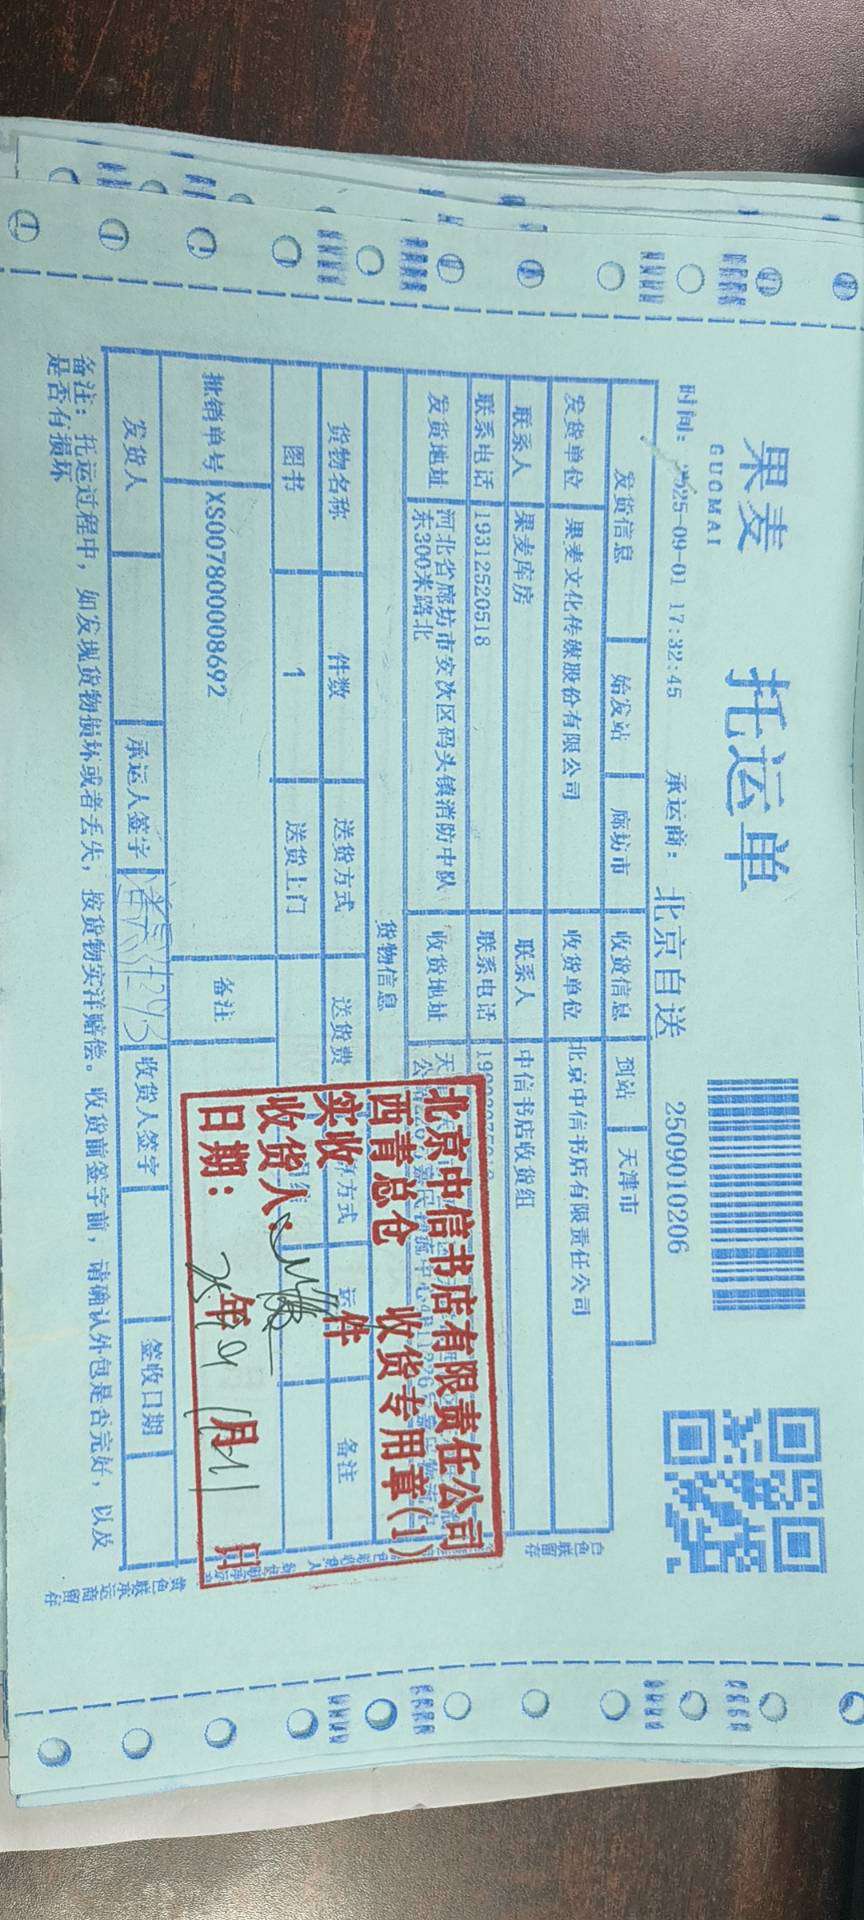 果麦 托运单
GUOMAI
时间: 25-09-01 17:32:45 承运商: 北京自送 2509010206
发货信息 始发站 廊坊市 收货信息 到站 天津市
发货单位 果麦文化传媒股份有限公司 收货单位 北京中信书店有限责任公司
联系人 果麦库房 联系人 中信书店收货组
联系电话 19312520518 联系电话
发货地址 河北省廊坊市安次区码头镇消防中队东300米路北 收货地址
货物信息
货物名称 件数 送货方式 送货费 方式 备注
图书 1 送货上门
批销单号 XS007800008692 备注
发货人 承运人签字 收货人签字 签收日期
备注: 托运过程中, 如发现货物损坏或者丢失, 按货物实洋赔偿。收货前签字前, 请确认外包是否完好, 以及
是否有损坏
北京中信书店有限责任公司
西青总仓 收货专用章(1)
实收 件
收货人:
日期: 年 月 日
白色联留存
黄色联承运商留存